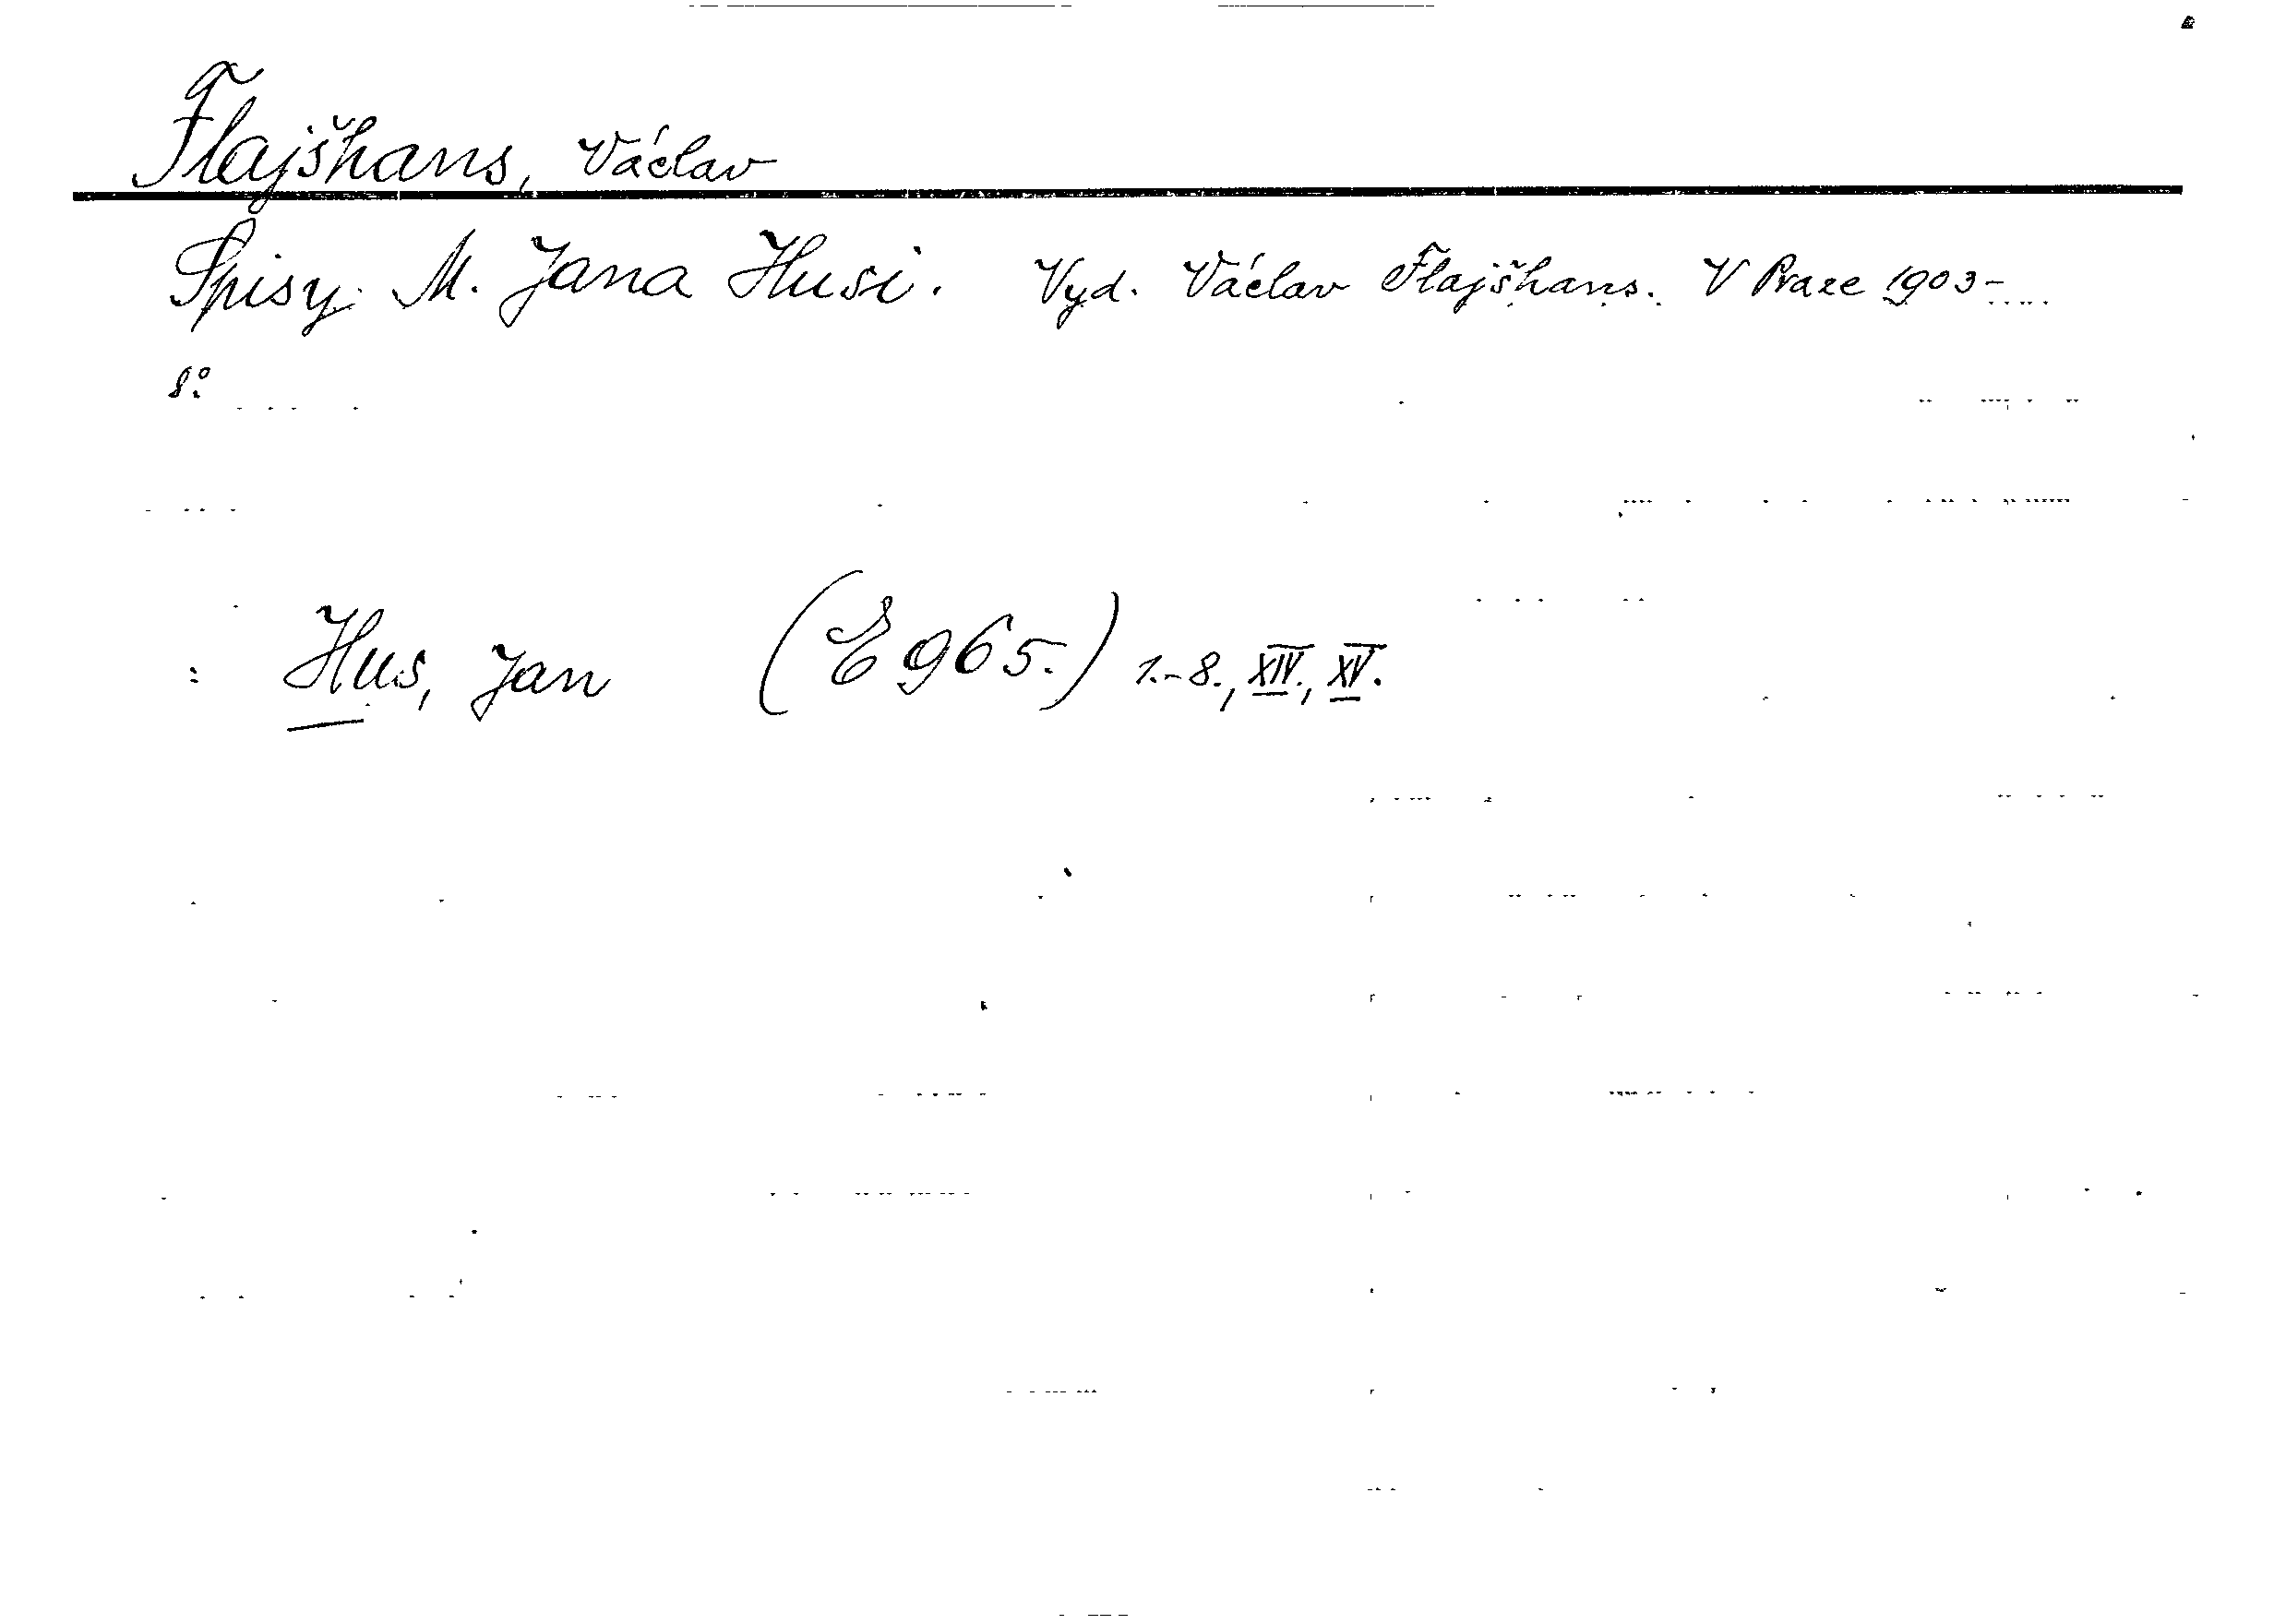 Flajšhans, Václav
Spisy M. Jana Husi. Vyd. Václav Flajšhans. V Praze 1903-
8°.
: Hus, Jan (E 965.) 1.-8., XIV., XV.